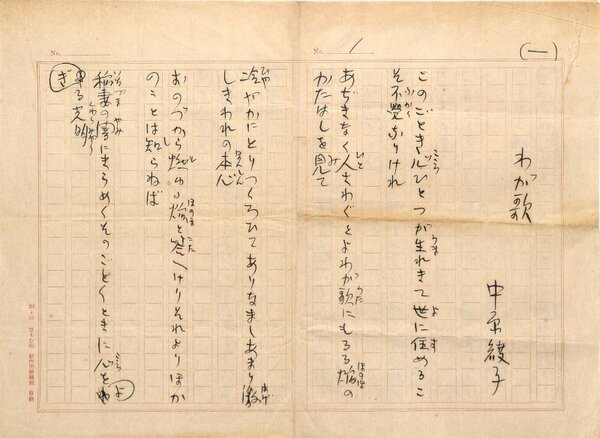 (一)
No. 1
No.
わが歌
中原綾子
このごとき心ひとつが生れきて世に住めるこ
そ不覺なりけれ
あぢきなく人さわぐとよわが歌にもるる焔の
かたはしを見て
冷やかにとりつくろひてありなましあまり激
しきわれの本心
おのづから燃ゆる焔と答へけりそれよりほか
のことは知らねば
稲妻の闇にきらめくそのごとくときに心をよ
ぎる光明